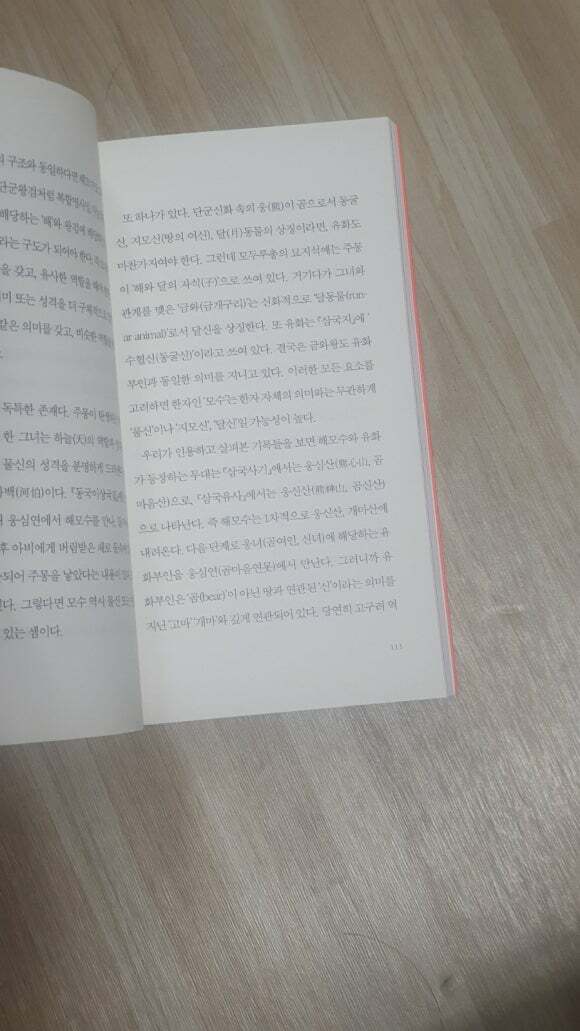 의 구조와 동일하다면 해모
단군왕검처럼 복합명사일
해당하는 '해'와 왕검에 해당
라는 구도가 되어야 한다. 즉
을 갖고, 유사한 역할을 해야
미 또는 성격을 더 구체적으로
같은 의미를 갖고, 비슷한 역할
독특한 존재다. 주몽이
한 그녀는 하늘(天)의 역할과
물신의 성격을 분명하게
하백(河伯)이다. 『동국이상국집』에
서 웅심연에서 해모수를 만나,
후 아비에게 버림받은 채로
되어 주몽을 낳았다는 내용이
된다. 그렇다면 모수 역시 물신
있는 셈이다.
또 하나가 있다. 단군신화 속의 웅(熊)이 곰으로서 동굴
신, 지모신(땅의 여신), 달(月)동물의 상징이라면, 유화도
마찬가지여야 한다. 그런데 모두루총의 묘지석에는 주몽
이 '해와 달의 자식(子)'으로 쓰여 있다. 거기다가 그녀와
관계를 맺은 '금와(금개구리)'는 신화적으로 '달동물(run-
ar animal)'로서 달신을 상징한다. 또 유화는 『삼국지』에 '
수혈신(동굴신)'이라고 쓰여 있다. 결국은 금와왕도 유화
부인과 동일한 의미를 지니고 있다. 이러한 모든 요소를
고려하면 한자인 '모수'는 한자 자체의 의미와는 무관하게
'물신'이나 '지모신', '달신'일 가능성이 높다.
우리가 인용하고 살펴본 기록들을 보면 해모수와 유화
가 등장하는 무대는 『삼국사기』에서는 웅심산(熊心山, 곰
마음산)으로, 『삼국유사』에서는 웅신산(熊神山, 곰신산)
으로 나타난다. 즉 해모수는 1차적으로 웅신산, 개마산에
내려온다. 다음 단계로 웅녀(곰여인, 신녀)에 해당하는 유
화부인을 웅심연(곰마음연못)에서 만난다. 그러니까 유
화부인은 '곰(bear)'이 아닌 땅과 연관된 '신'이라는 의미를
지닌 '고마' '개마'와 깊게 연관되어 있다. 당연히 고구려 역
113